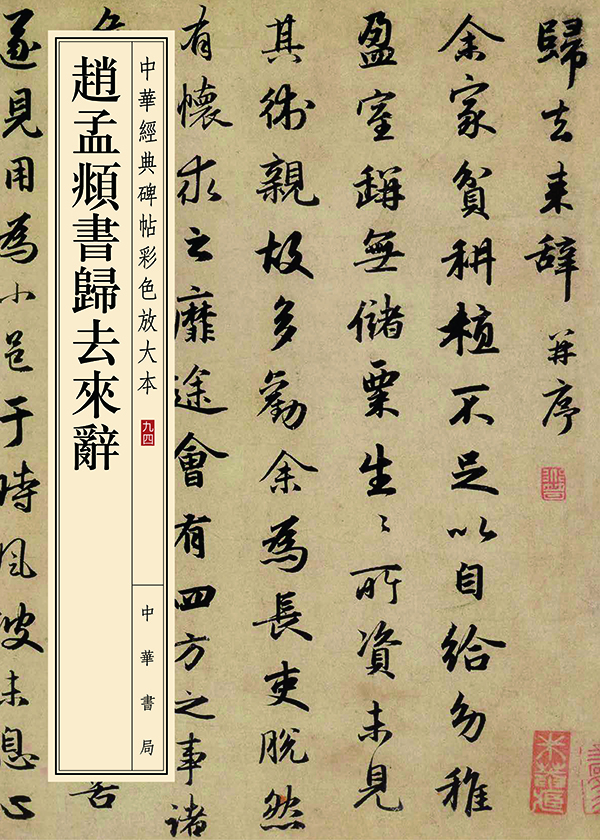 歸去来辞并序
余家貧耕植不足以自給幼稚
盈室缾無儲粟生〻所資未見
其術親故多勸余為長吏脫然
有懷求之靡途會有四方之事諸
苦
遂見用為小邑于時風波未息心
中華經典碑帖彩色放大本 九四
趙孟頫書歸去來辭
中華書局